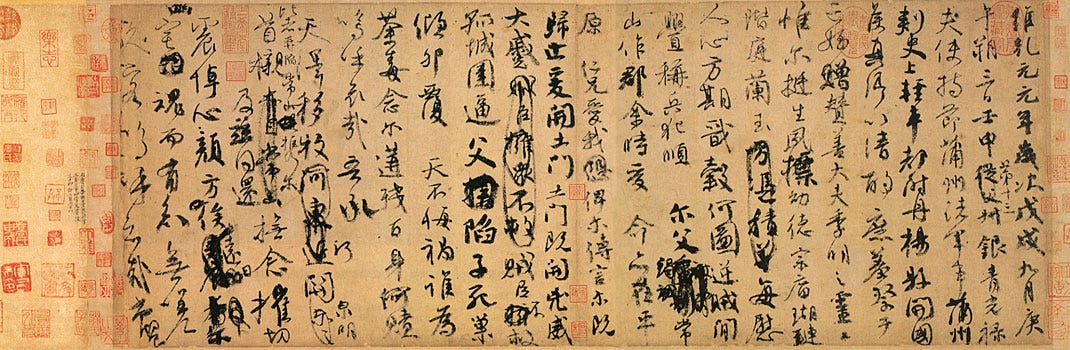 維乾元元年歲次戊戌九月庚
午朔三日壬申第十三從父叔銀青光祿
夫使持節蒲州諸軍事蒲州
刺史上輕車都尉丹楊縣開國
侯真卿以清酌庶羞祭于
亡姪贈贊善大夫季明之靈曰
惟爾挺生夙標幼德宗廟瑚璉
階庭蘭玉方憑積善每慰
人心方期戩穀何圖逆賊閒
釁稱兵犯順爾父常
山作郡余時受命亦在平
原仁兄愛我俾爾傳言爾既
歸止爰開土門土門既開凶威
大蹙賊臣擁眾不救賊臣不救
孤城圍逼父陷子死巢
傾卵覆天不悔禍誰為
荼毒念爾遘殘百身何贖
嗚呼哀哉吾承
天澤移牧河東近河關泉明
比者再陷常山攜爾
首櫬及茲同還撫念摧切
震悼心顏方俟遠日卜爾
幽宅魂而有知無嗟
久客嗚呼哀哉尚饗